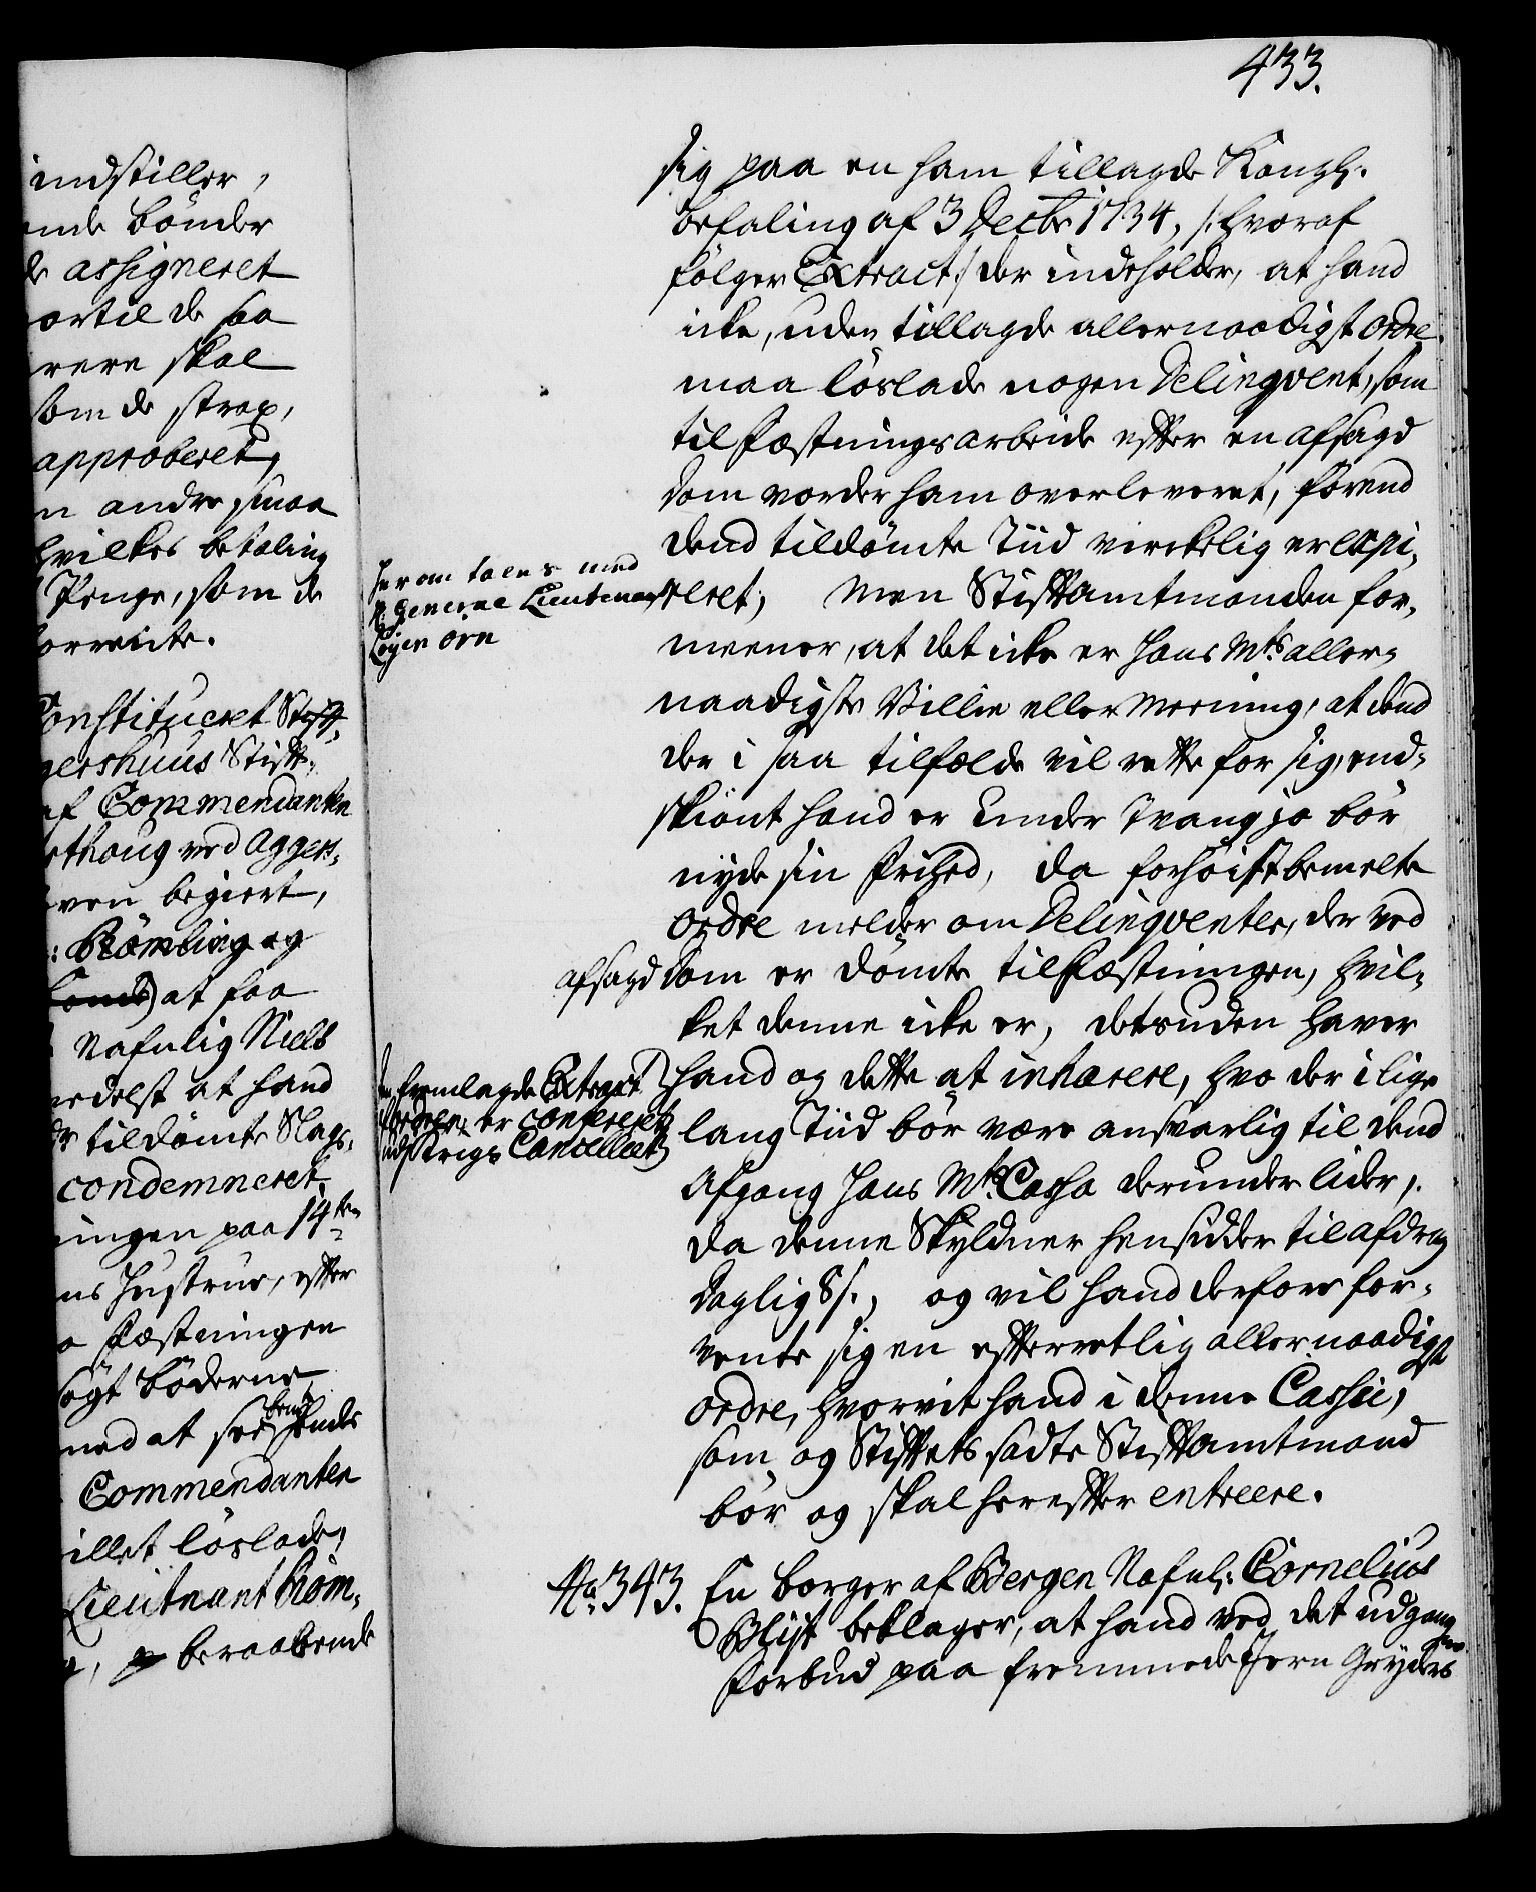 indstiller,
ende bönder
de assigneret
ortil de saa
rere skal
som de strax,
approberet,
n andre smaa
hvilkes betaling
Penge, som de
forrente.
Constitueret Stift-
gershuus Stifts-
af Commendanten
thoug ved Aggers-
ven begiert,
Römling og
at faa
Nafnlig Niels
medelst at hand
de tildömte Slags-
condemneret
ingen paa 14ten
ns Hustrue, efter
o Fæstningen
sögt böderne
med at see hendes
Commendanten
villet löslade,
Lieutnant Röm-
beraabende
433.
sig paa en ham tillagde Kongl.
befaling af 3 Decbr 1734, /: hvoraf
fölger Extract :/ der indeholder, at hand
icke, uden tillagde allernaadigst ordre
maa löslade nogen Delinqvent, som
til Fæstningsarbeide efter en afsagd
Dom vorder ham overleveret, förend
dend tildömte Tiid virckelig er expi-
reret; Men Stiftamtmanden for-
meener, at det icke er Hans Mts aller-
naadigste Villie eller Meening, at dend
der i saa tilfælde vil rette for sig, end-
skiönt hand er under Tvang jo bör
nyde sin Frihed, da forhöistbemelte
ordre melder om Delinqventer, der ved
afsagd Dom er dömte til Fæstningen, hvil-
ket denne icke er, desuden haver
hand og dette at inhærere, hvo der i lige
lang Tiid bör være ansvarlig til dend
Afgang Hans Mts Cassa derunder lider,
da denne Skyldner hensidder til afdrag
daglig 8 s., og vil hand derfore for-
vente sig en efterretlig allernaadigst
ordre, hvorvit hand i denne Cassu,
som og Stiftets sadte Stiftamtmand
bör og skal herefter entreere.
Herom tales med
H. General Lieutenant
Löyenörn
den fremlagde Extract
af ordren er confereret
udj Krigs Cancelliet
No. 343. En borger af Bergen Nafnl: Cornelius
Blijt beklager, at hand ved det udgangne
Forbud paa fremmede Jern Gryders